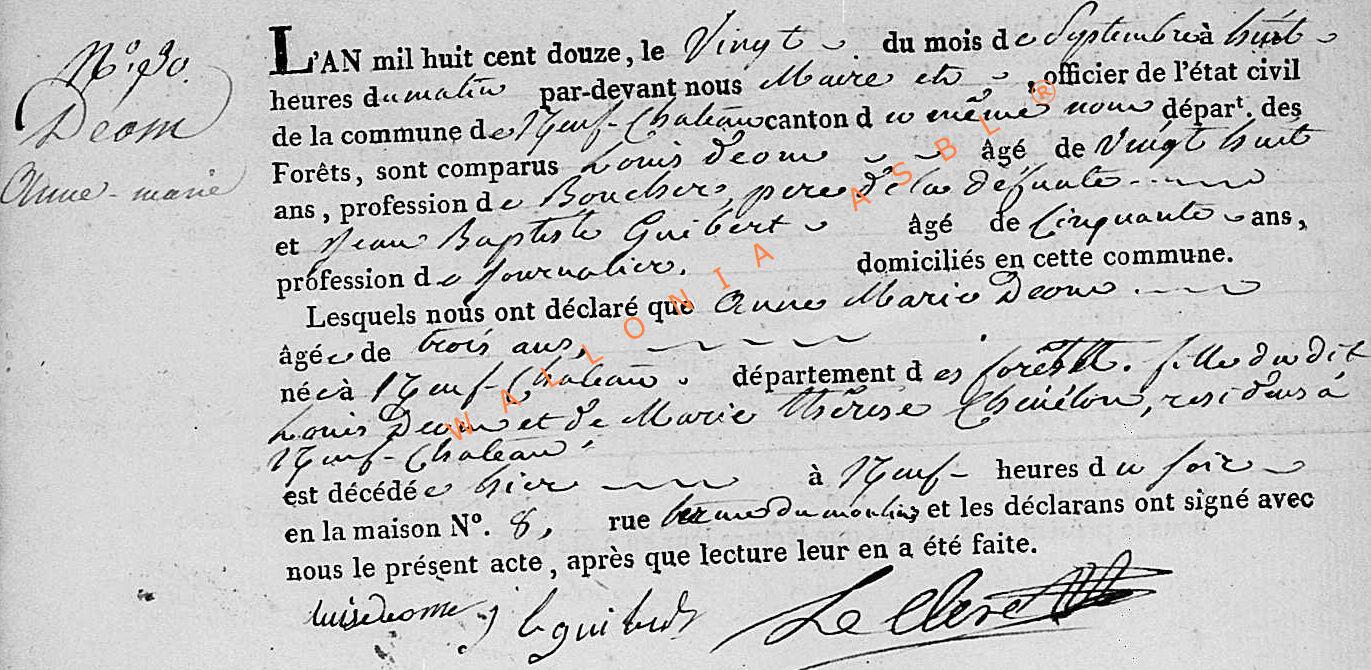 N.º 90.
Deom
Anne-marie
L'AN mil huit cent douze, le Vingt du mois de Septembre à huit
heures du matin par-devant nous Maire et, officier de l'état civil
de la commune de Neuf-Chateau canton du même nom départ. des
Forêts, sont comparus Louis Deom âgé de Vingt huit
ans, profession de Boucher, pere de la défunte
et Jean Baptiste Guibert âgé de Cinquante ans,
profession de journalier. domiciliés en cette commune.
Lesquels nous ont déclaré que Anne Marie Deom
âgée de trois ans,
née à Neuf-Chateau. département des forêts. fille du dit
Louis Deom et de Marie Thérese residens à
Neuf-Chateau
est décédée hier à Neuf heures du soir
en la maison Nº. 8, rue du moulin et les déclarans ont signé avec
nous le présent acte, après que lecture leur en a été faite.
luis deome j b guibert Le Clerc
WALLONIA ASBL ®